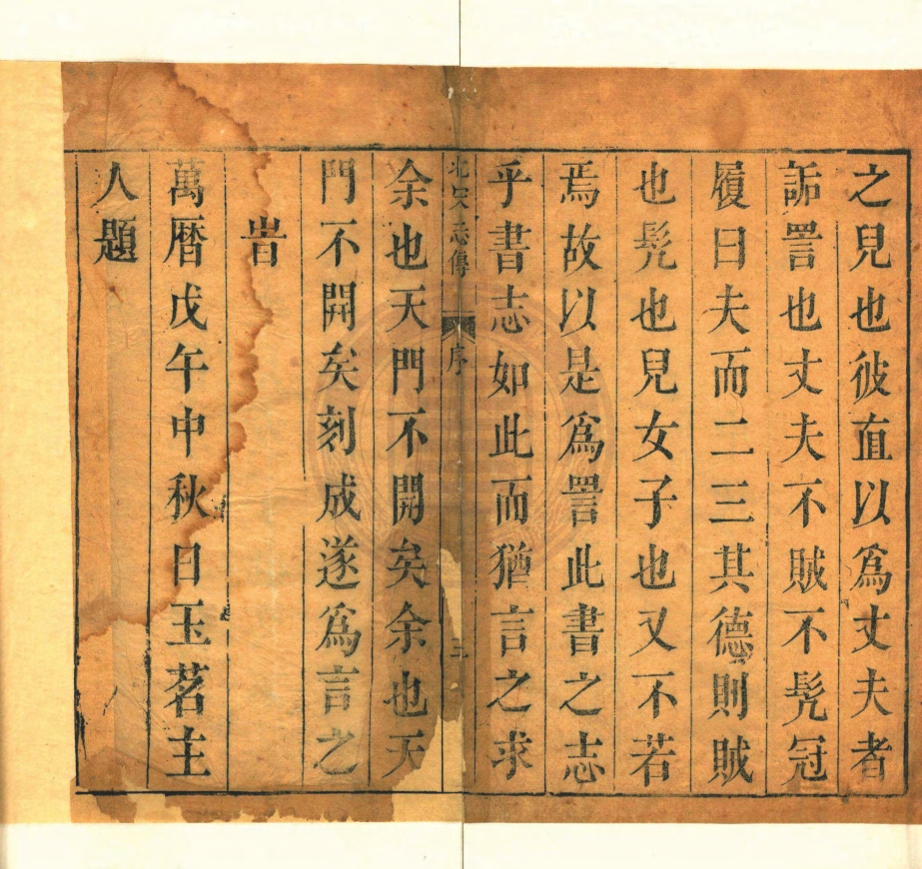 之兒也彼直以爲丈夫者
詬詈也丈夫不賊不髡冠
履曰夫而二三其德則賊
也髡也兒女子也又不若
焉故以是爲詈此書之志
乎書志如此而猶言之求
北宋志傳 序 三
余也天門不開矣余也天
門不開矣刻成遂爲言之
旹
萬曆戊午中秋日玉茗主
人題